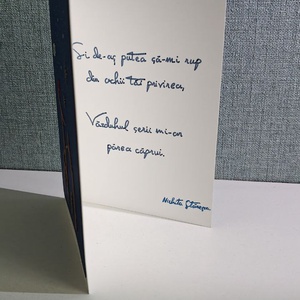 Și de-aș putea să-mi rup
din ochii tăi privirea,
Văzduhul serii mi-ar
părea căprui.
Nichita Stănescu